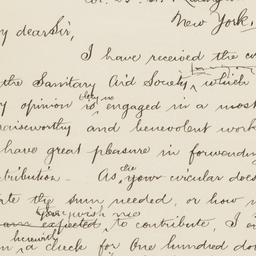 New York,
y dear Sir,
I have received the
the Sanitary Aid Society, which
y opinion is engaged in a most
raiseworthy and benevolent work
have great pleasure in forwarding
tribution. As the your circular does
ate the sum needed, or how m
you wish me
expected to contribute, I
herewith
a check for One hundred do